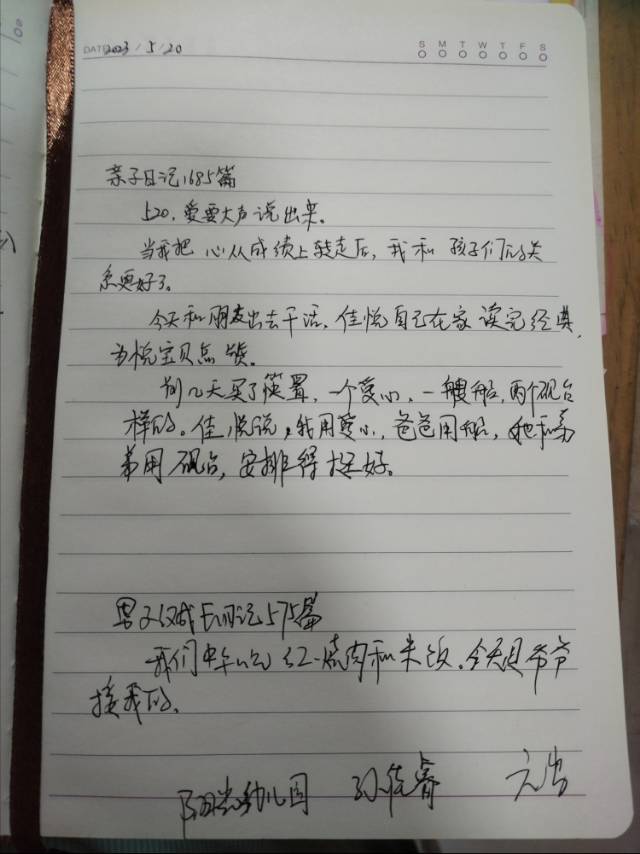 DATE 2023/5/20
S M T W T F S
亲子日记1685篇
520,爱要大声说出来。
当我把心从成绩上转走后,我和孩子们的关
系更好了。
今天和朋友出去干活,佳悦自己在家读完经典,
为悦宝贝点赞。
前几天买了筷置,一个爱心,一艘船,两个砚台
样的。佳悦说,我用爱心,爸爸用船,她和弟
弟用砚台,安排得挺好。
男子汉成长日记575篇
我们中午吃红烧肉和米饭。今天是爷爷
接我的。
阳光幼儿园 孙佳睿